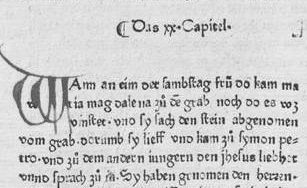 ¶ Das xx. Capitel.
WAnn an eim der sambstag frů do kam ma
ria magdalena zů dē grab noch do es wz
vinster. vnd sy sach den stein abgenomen
vom grab. dorumb sy lieff vnd kam zů symon pe-
tro. vnd zů dem andern iungern den jhesus liebhet
vnnd sprach zů in. Sy haben genomen den herren.